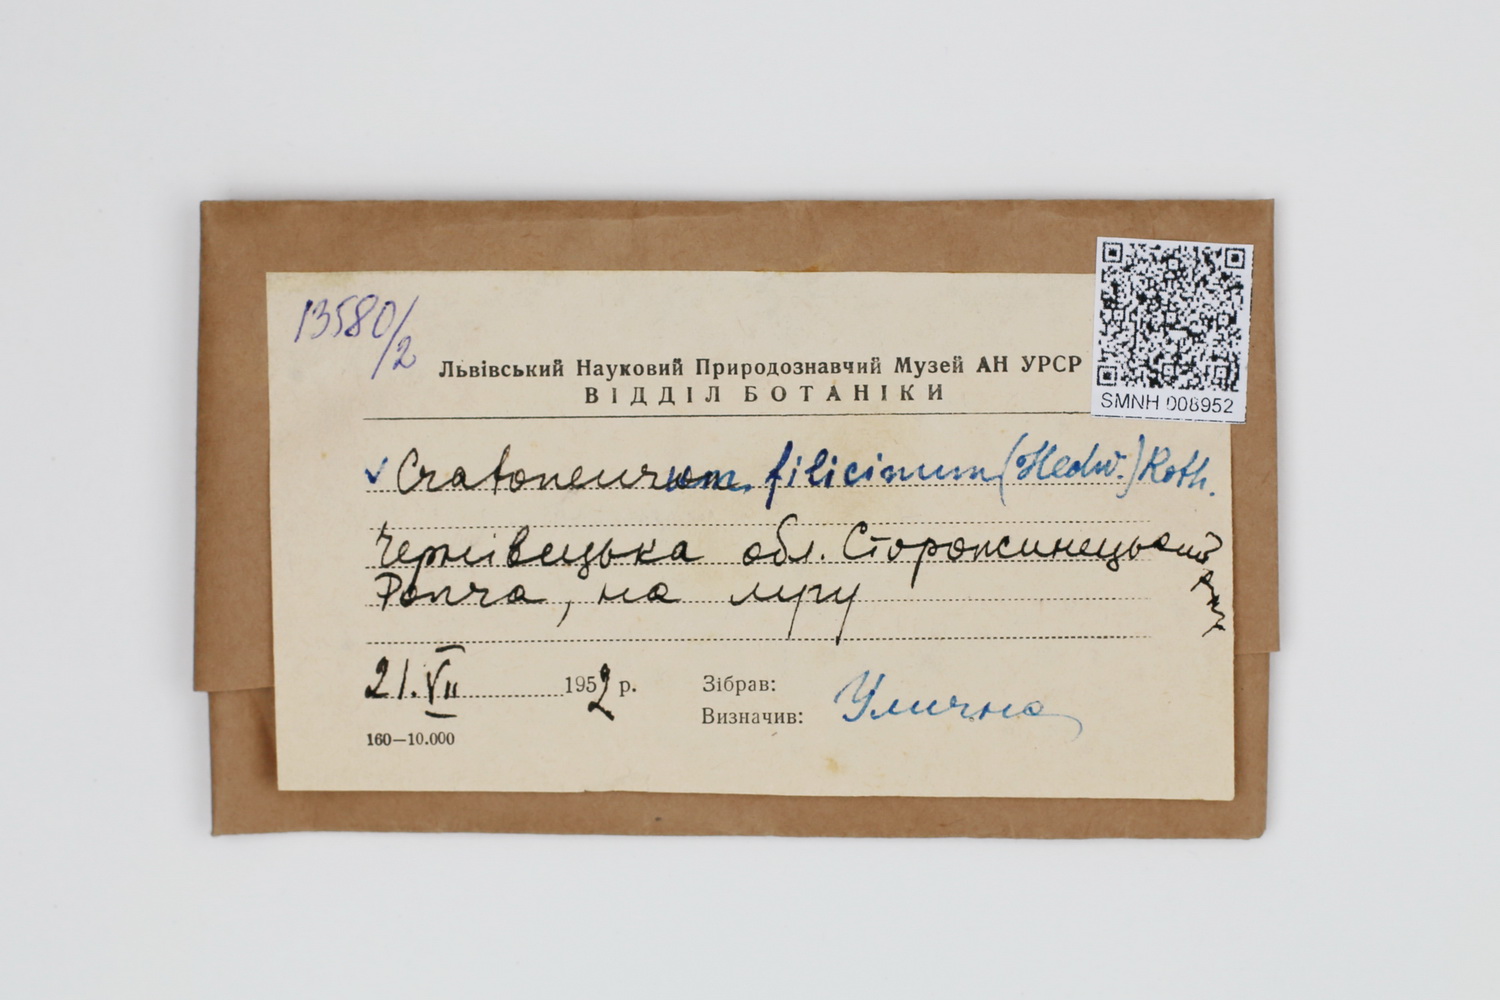 13580/2
Львівський Науковий Природознавчий Музей АН УРСР
ВІДДІЛ БОТАНІКИ
SMNH 008952
✓ Cratoneurum filicinum (Hedw.) Roth.
Чернівецька обл. Сторожинецький
Ропча, на лугу
21.VII 1952 р.
Зібрав:
Визначив: Улична
160—10.000